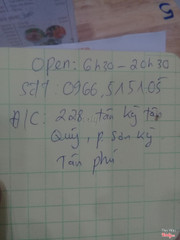 Open: 6h30 - 20h30
SĐT 0966.515.105
Đ/C: 228. tân kỳ tân
Quý, p sơn kỳ
Tân phú